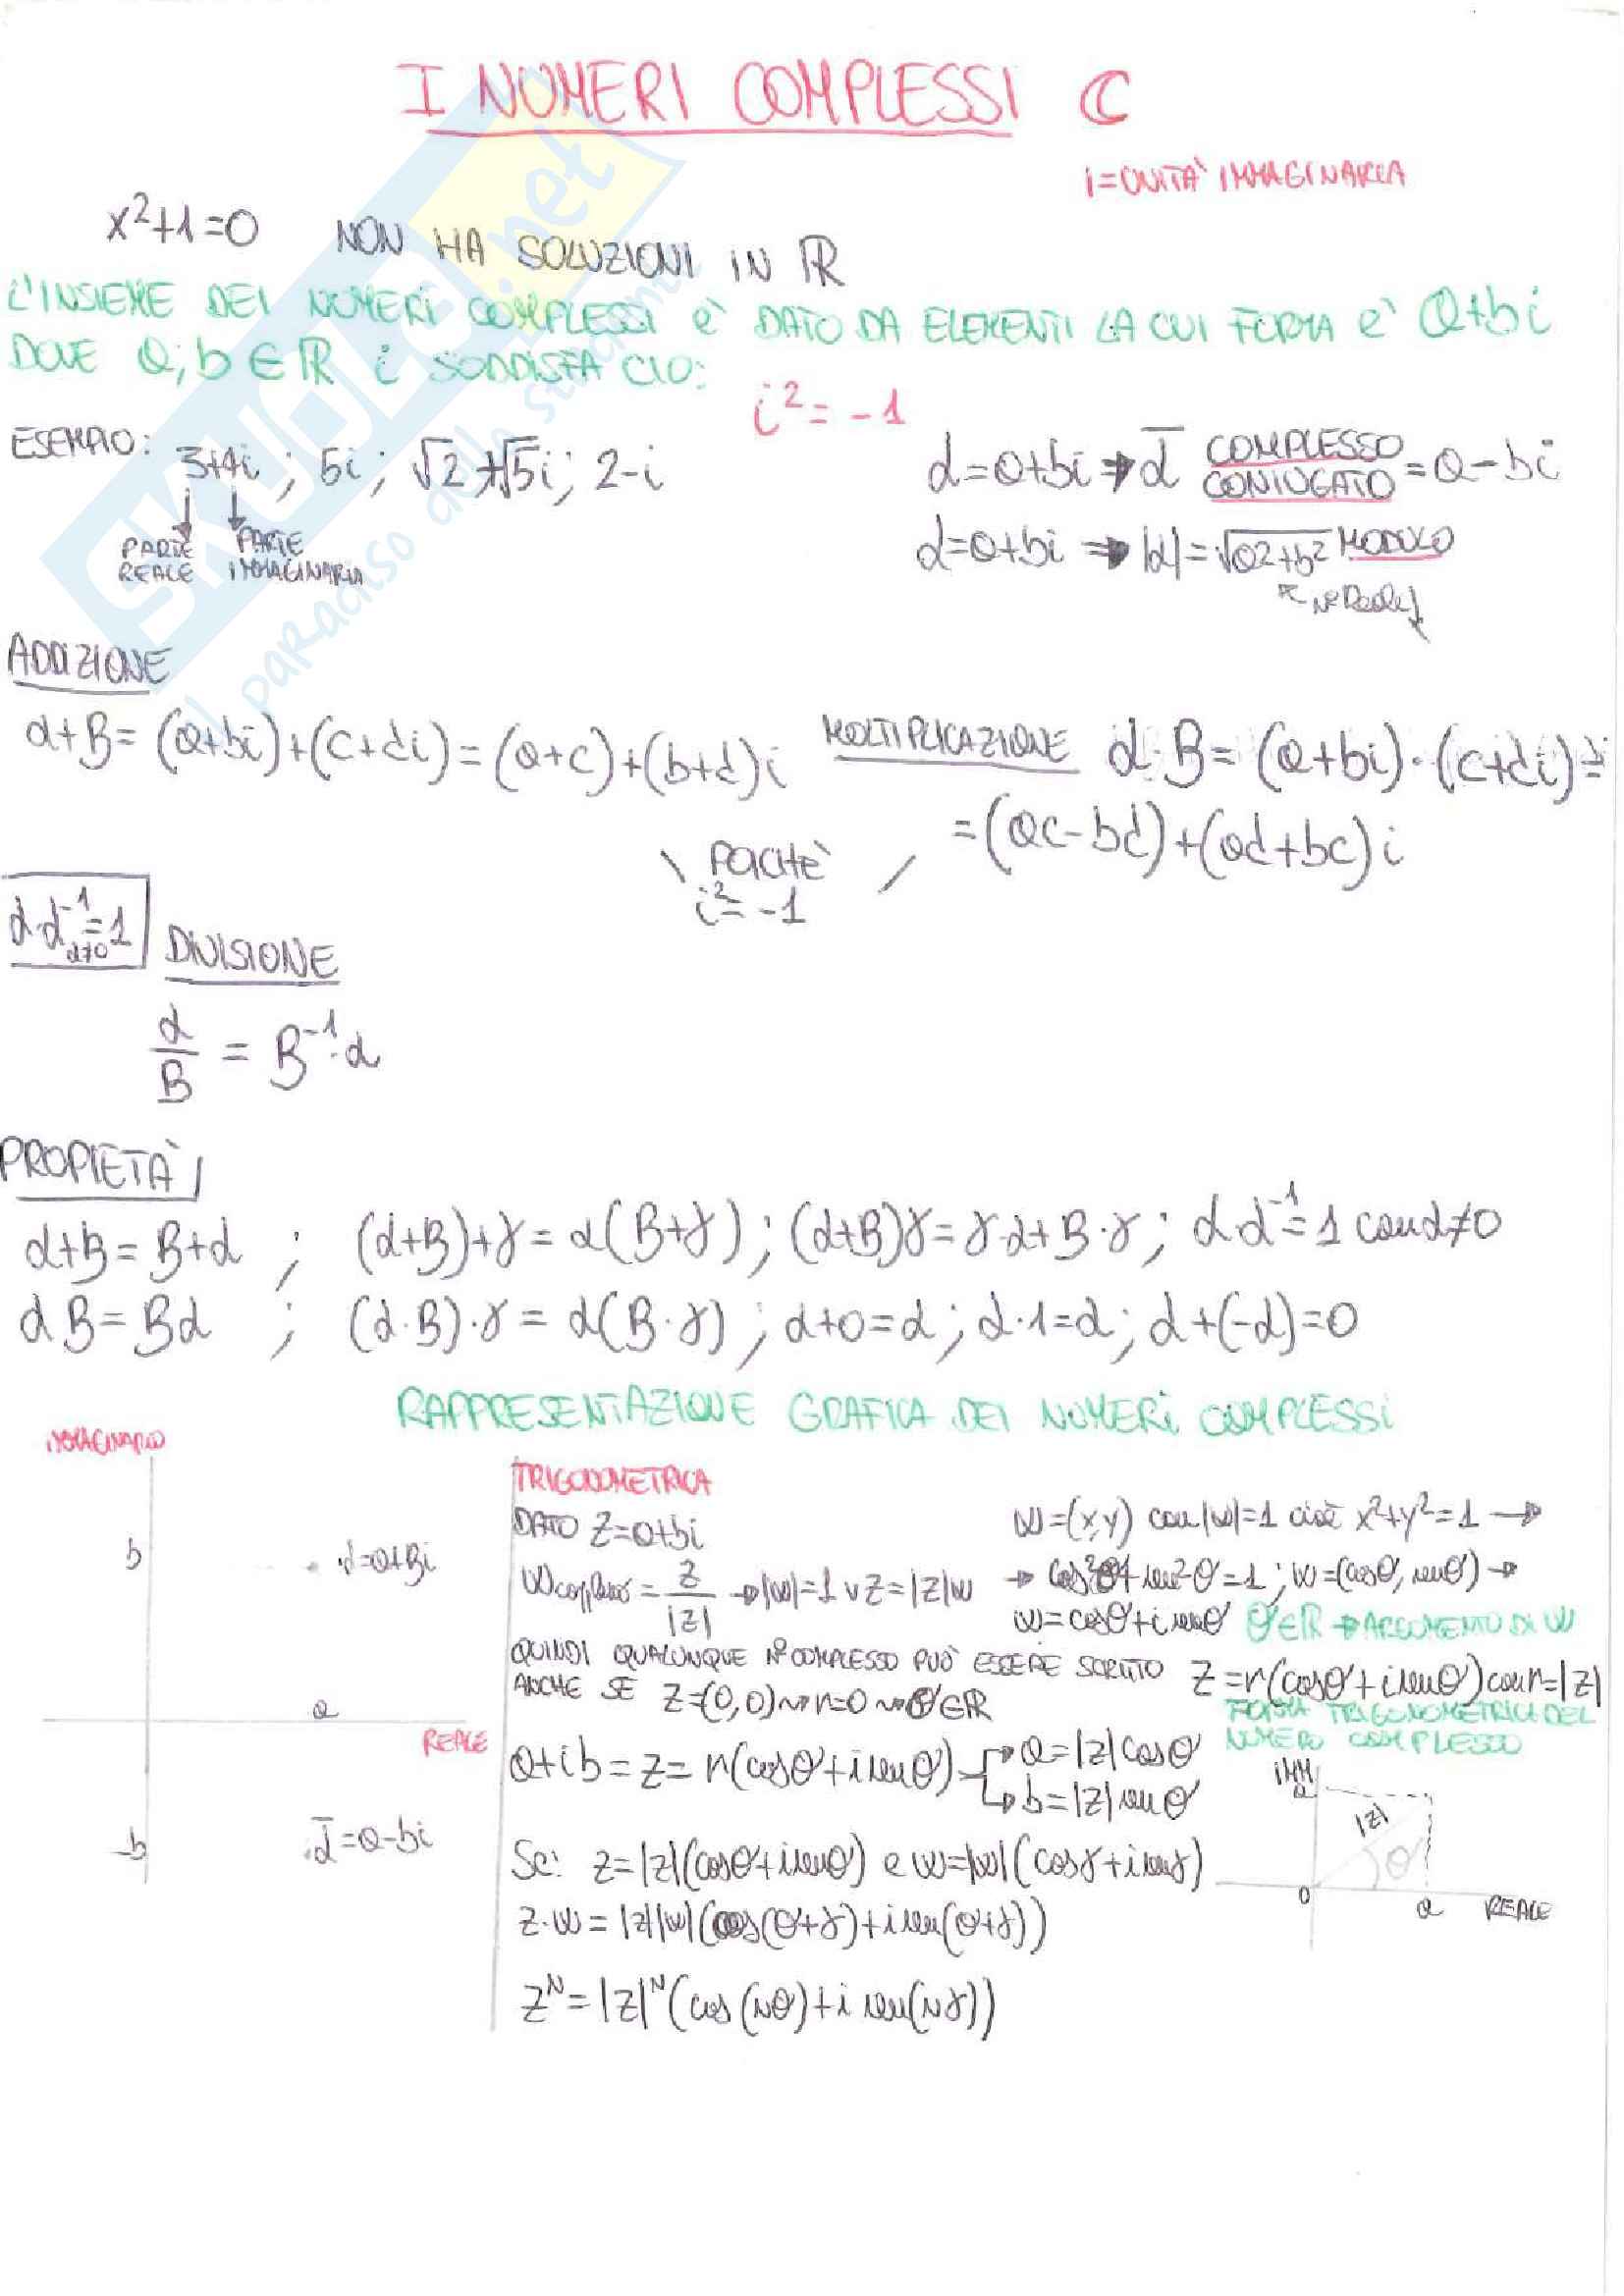 I NUMERI COMPLESSI ℂ
i=UNITÀ IMMAGINARIA
x²+1=0 NON HA SOLUZIONI IN ℝ
L'INSIEME DEI NUMERI COMPLESSI è DATO DA ELEMENTI LA CUI FORMA è a+bi
DOVE a;b∈ℝ i SODDISFA CIO:
i²=-1
ESEMPIO: 3+4i ; 5i ; √2+√5i; 2-i
PARTE REALE
PARTE IMMAGINARIA
α=a+bi → ᾱ COMPLESSO CONIUGATO = a-bi
α=a+bi → |α|=√a²+b² MODULO
N° Reale
ADDIZIONE
α+B=(a+bi)+(c+di)=(a+c)+(b+d)i
MOLTIPLICAZIONE α·B=(a+bi)·(c+di)=
=(ac-bd)+(ad+bc)i
POICHÈ
i²=-1
α·α⁻¹=1
α≠0
DIVISIONE
α/B = B⁻¹·α
PROPIETÀ
α+B=B+α ; (α+B)+γ=α(B+γ) ; (α+B)γ=γ·α+B·γ ; α·α⁻¹=1 con α≠0
αB=Bα ; (α·B)·γ=α(B·γ) ; α+0=α ; α·1=α ; α+(-α)=0
RAPPRESENTAZIONE GRAFICA DEI NUMERI COMPLESSI
IMMAGINARIO
b
α=a+Bi
a
REALE
-b
ᾱ=a-bi
TRIGONOMETRICA
DATO Z=a+bi
W = Z/|Z| → |w|=1 v Z=|Z|w
W=(x,y) con |w|=1 cioè x²+y²=1 →
→ cos²θ+sen²θ=1 ; w=(cosθ, senθ) →
w=cosθ+i senθ θ∈ℝ → ARGOMENTO DI W
QUINDI QUALUNQUE N° COMPLESSO PUÒ ESSERE SCRITTO Z=r(cosθ+i senθ) con r=|Z|
ANCHE SE Z=(0,0) → r=0 → θ∈ℝ
FORMA TRIGONOMETRICA DEL
NUMERO COMPLESSO
a+ib=z=r(cosθ+i senθ) → a=|z|cosθ
→ b=|z|senθ
Se: z=|z|(cosθ+i senθ) e w=|w|(cosγ+i senγ)
z·w=|z||w|(cos(θ+γ)+i sen(θ+γ))
zᴺ=|z|ᴺ(cos(Nθ)+i sen(Nγ))
IMM
a
|z|
θ
0
a
REALE
SKUOLA.net
il paradiso dello studente